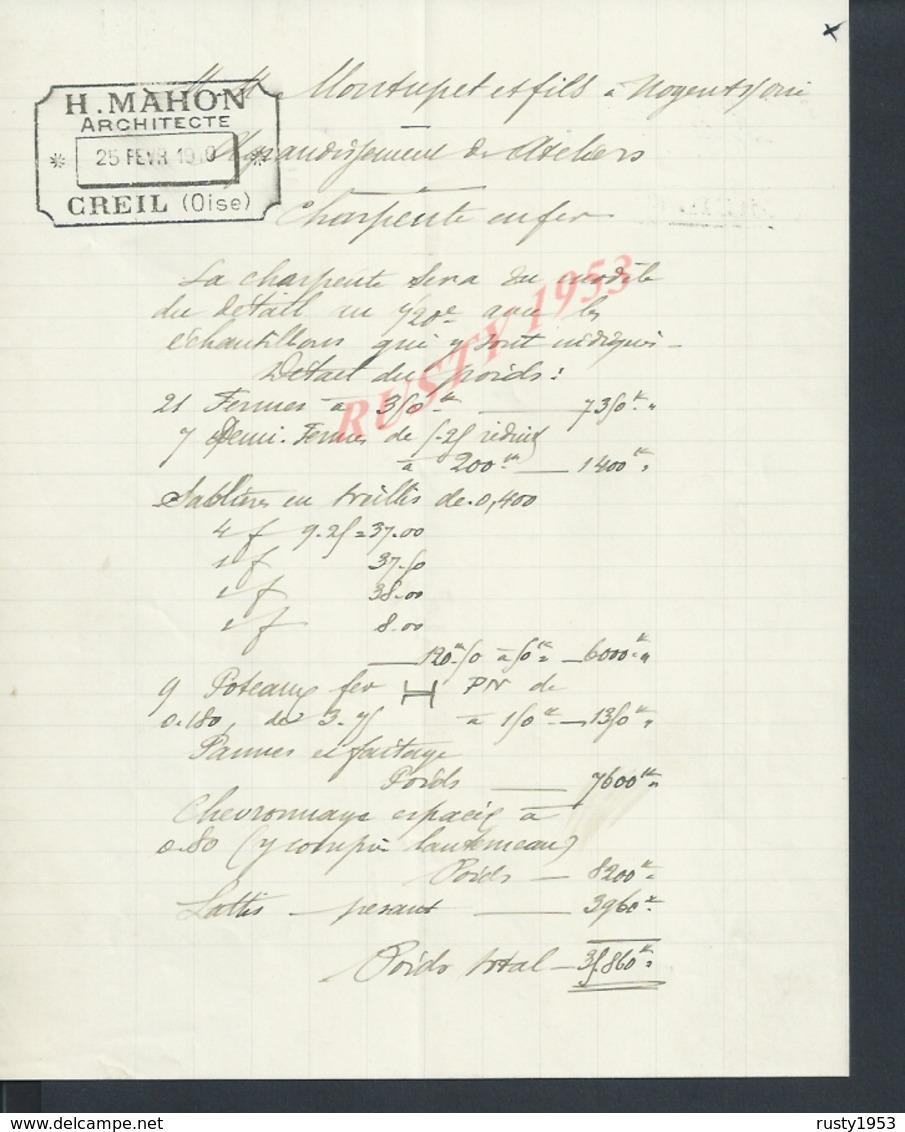 H. MAHON
ARCHITECTE
25 FEVR 1910
CREIL (Oise)
Montupet et fils à Nogent s/ Oise
Agrandissement des Ateliers
Charpente en fer
La charpente sera du modèle
du détail au 1/20e avec les
échantillons qui y sont indiqués
Détail du poids :
21 Fermes à 350k 7350k"
7 Demi-Fermes de 5.25 réduit
à 200k 1400k"
Sablières en treillis de 0,400
4 f 9.25 = 37.00
1 f 37.50
1 f 38.00
1 f 8.00
120m50 à 50k 6000k"
9 Poteaux fer H PN de
0.180, de 3.75 à 150k 1350k"
Pannes et faîtage
Poids 7600k"
Chevronnage espacés à
0.80 (y compris lanterneau)
Poids 8200k"
Lattis pesant 3960k"
Poids total 35.860k"
RUSTY 1953
rusty1953